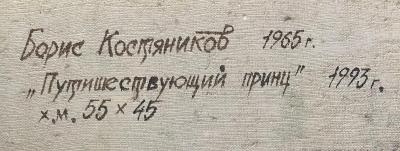 Борис Костяников 1965 г.
„Путишествующий принц" 1993 г.
х.м. 55 × 45